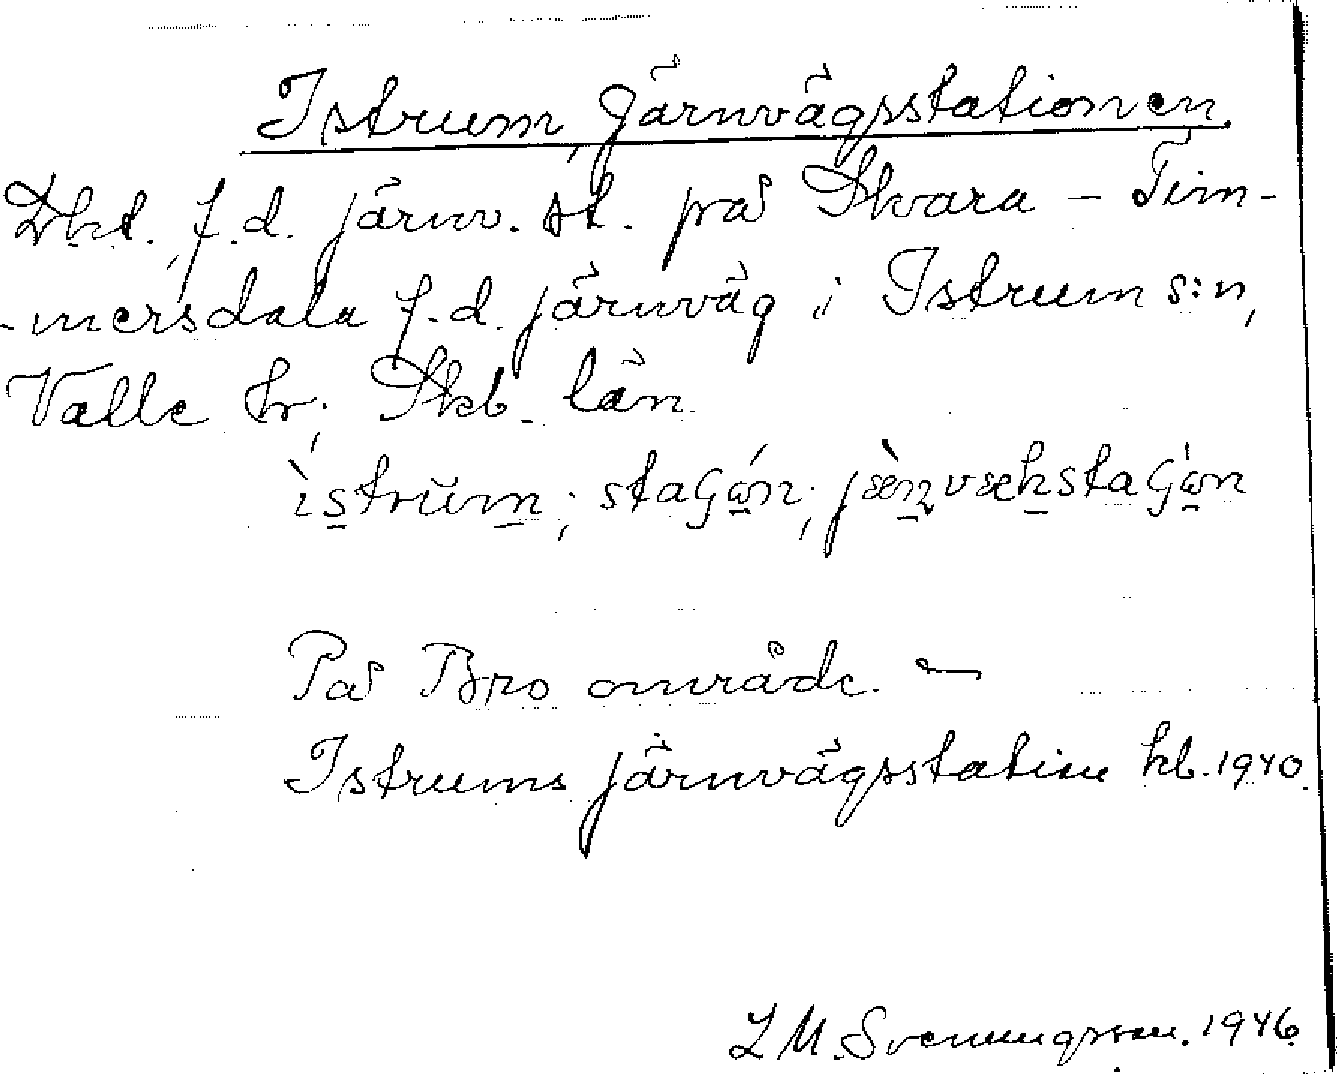 Istrum, Järnvägsstationen.
Dkt., f.d. järnv. st. på Skara – Tim-
-mersdala f.d. järnväg i Istrum s:n,
Valle hr; Skb. län.
ìstrŭm; staGón; jæ̀ɳvækstaGón
På Bro område. –
Istrums järnvägsstation kb. 1940.
L M. Svenungsson. 1946.